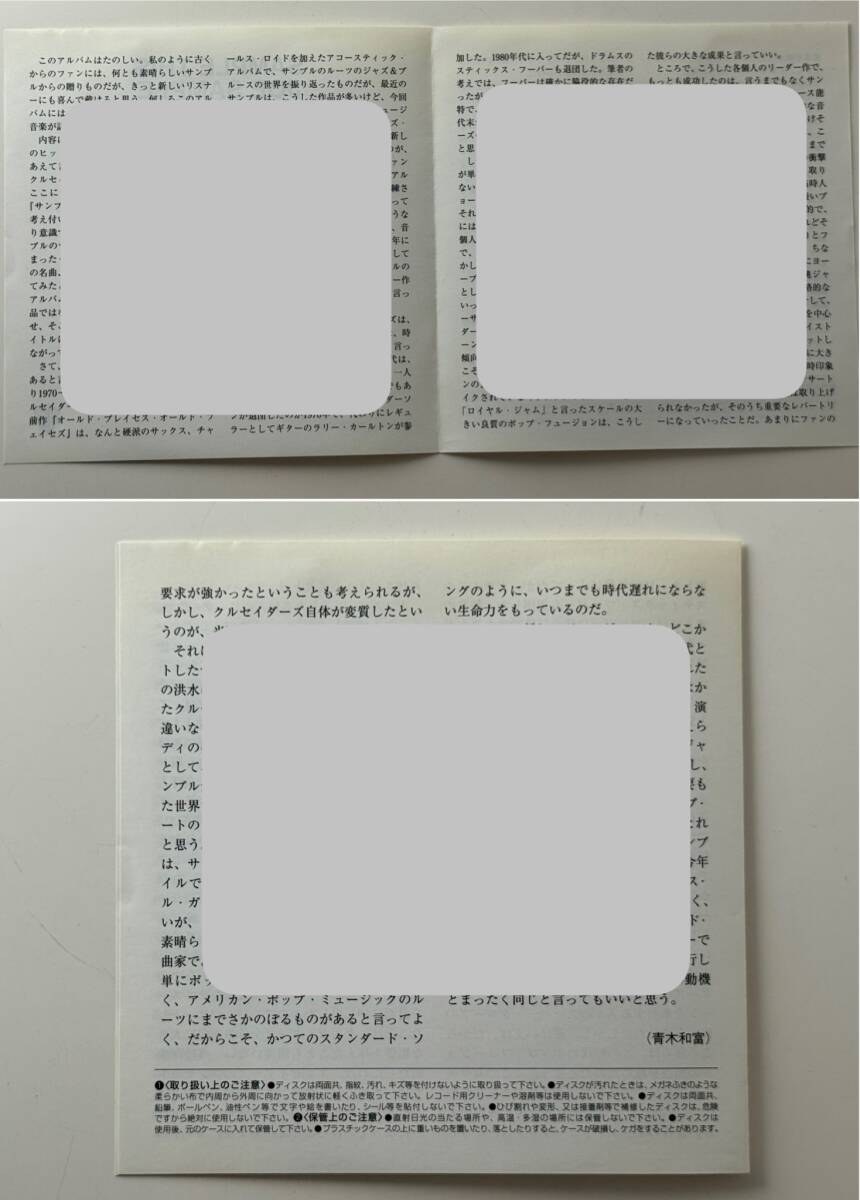 このアルバムはたのしい。私のように古く
からのファンには、何とも素晴らしいサンプ
ルからの贈りものだが、きっと新しいリスナ
ーにも喜んで戴けると思う。何しろこのアル
バムには
音楽が
内容に
のヒッ
あえて
クルセ
ここに
『サンプ
考え付い
り意識
プルの
まった
の名曲、
てみた
アルバ
品では
せ、そ
イトルに
ながって
さて、
あると
り1970
ルセイダ
前作『オールド・プレイセス・オールド・フ
ェイセズ』は、なんと硬派のサックス、チャ
ールス・ロイドを加えたアコースティック・
アルバムで、サンプルのルーツのジャズ&ブ
ルースの世界を振り返ったものだが、最近の
サンプルは、こうした作品が多いけど、今回
ュージ
ズ・
新し
のが、
ァン
アル
練さ
って
うな
、音
年に
して
ルの
ー作
言っ
ズは、
、時
言っ
代は、
一人
もあ
ダーソ
ンが退団したのが1976年で、代わりにレギュ
ラーとしてギターのラリー・カールトンが参
加した。1980年代に入ってだが、ドラムスの
スティックス・フーパーも退団した。筆者の
考えでは、フーパーは確かに脇役的な存在だ
ったが
特で、
代末
ーズ
と思
し
が単
ない
ョー
それ
には
個人
で、
かし
ープ
とし
いっ
ーサ
ダー
ーン
傾向
こそ
ンの
イクされ
「ロイヤル・ジャム」と言ったスケールの大
きい良質のポップ・フュージョンは、こうし
た彼らの大きな成果と言っていい。
ところで、こうした各個人のリーダー作で、
もっとも成功したのは、言うまでもなくサン
ース能
な音
けそ
、こ
まで
の衝撃
取り
当時人
いブ
的で、
れどそ
りとフ
ちな
にヨー
逸ジャ
格的な
して、
を中心
イスト
ットし
に大き
時印象
サート
は取り上げ
られなかったが、そのうち重要なレパートリ
ーになっていったことだ。あまりにファンの
要求が強かったということも考えられるが、
しかし、クルセイダーズ自体が変質したとい
うのが、
それ
トした
の洪水
たクル
違いな
ディの
として
ンプル
た世界
ートの
と思う
は、サ
イルで
ル・ガ
いが、
素晴ら
曲家で
単にポッ
く、アメリカン・ポップ・ミュージックのル
ーツにまでさかのぼるものがあると言ってよ
く、だからこそ、かつてのスタンダード・ソ
ングのように、いつまでも時代遅れにならな
い生命力をもっているのだ。
どこか
代と
れた
はか
演
えら
ジャ
し、
要も
ブ・
これ
ンプ
今年
ス・
く、
ド・
ーで
行し
動機
とまったく同じと言ってもいいと思う。
（青木和富）
❶〈取り扱い上のご注意〉●ディスクは両面共、指紋、汚れ、キズ等を付けないように取り扱って下さい。●ディスクが汚れたときは、メガネふきのような
柔らかい布で内周から外周に向かって放射状に軽くふき取って下さい。レコード用クリーナーや溶剤等は使用しないで下さい。●ディスクは両面共、
鉛筆、ボールペン、油性ペン等で文字や絵を書いたり、シール等を貼付しないで下さい。●ひび割れや変形、又は接着剤等で補修したディスクは、危険
ですから絶対に使用しないで下さい。❷〈保管上のご注意〉●直射日光の当たる場所や、高温・多湿の場所には保管しないで下さい。●ディスクは
使用後、元のケースに入れて保管して下さい。●プラスチックケースの上に重いものを置いたり、落としたりすると、ケースが破損し、ケガをすることがあります。